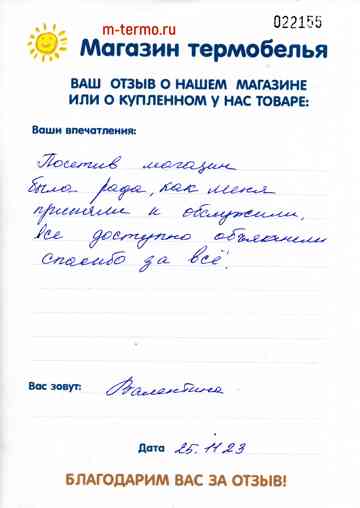 022155
m-termo.ru
Магазин термобелья
ВАШ ОТЗЫВ О НАШЕМ МАГАЗИНЕ
ИЛИ О КУПЛЕННОМ У НАС ТОВАРЕ:
Ваши впечатления:
Посетив магазин
была рада, как меня
приняли и обслужили,
все доступно объяснили
спасибо за всё!
Вас зовут: Валентина
Дата 25.11.23
БЛАГОДАРИМ ВАС ЗА ОТЗЫВ!